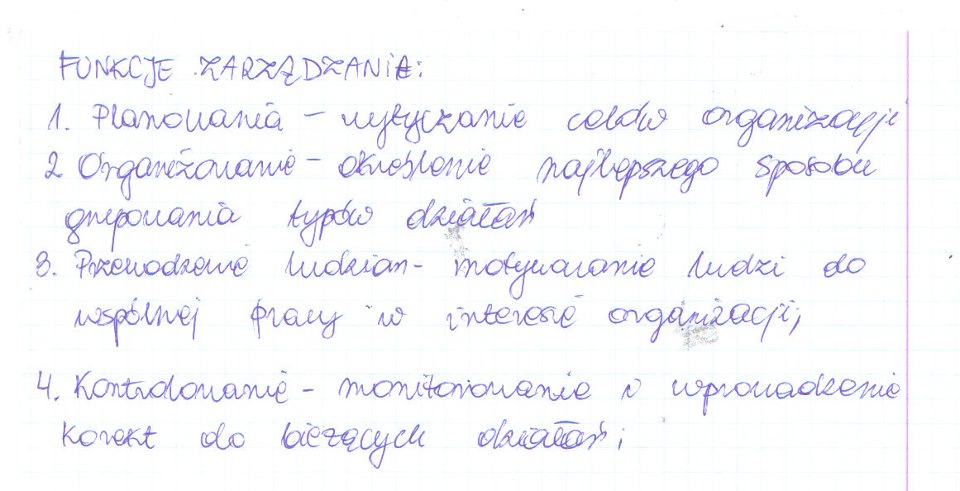 FUNKCJE ZARZĄDZANIE:
1. Planowania – wytyczanie celów organizacji
2 Organizowanie – określenie najlepszego sposobu
grupowania typów działań
3. Przewodzenie ludziom – motywowanie ludzi do
wspólnej pracy w interesie organizacji;
4. Kontrolowanie – monitorowanie i wprowadzenie
korekt do bieżących działań;